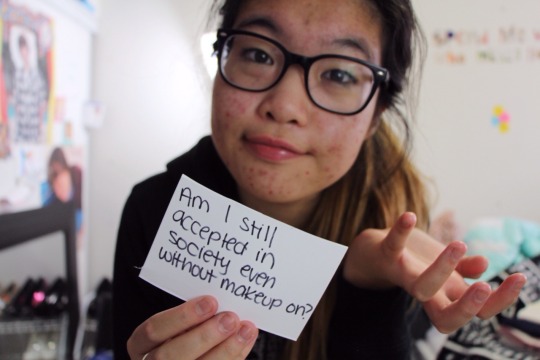 Am I still
accepted in
society even
without makeup on?